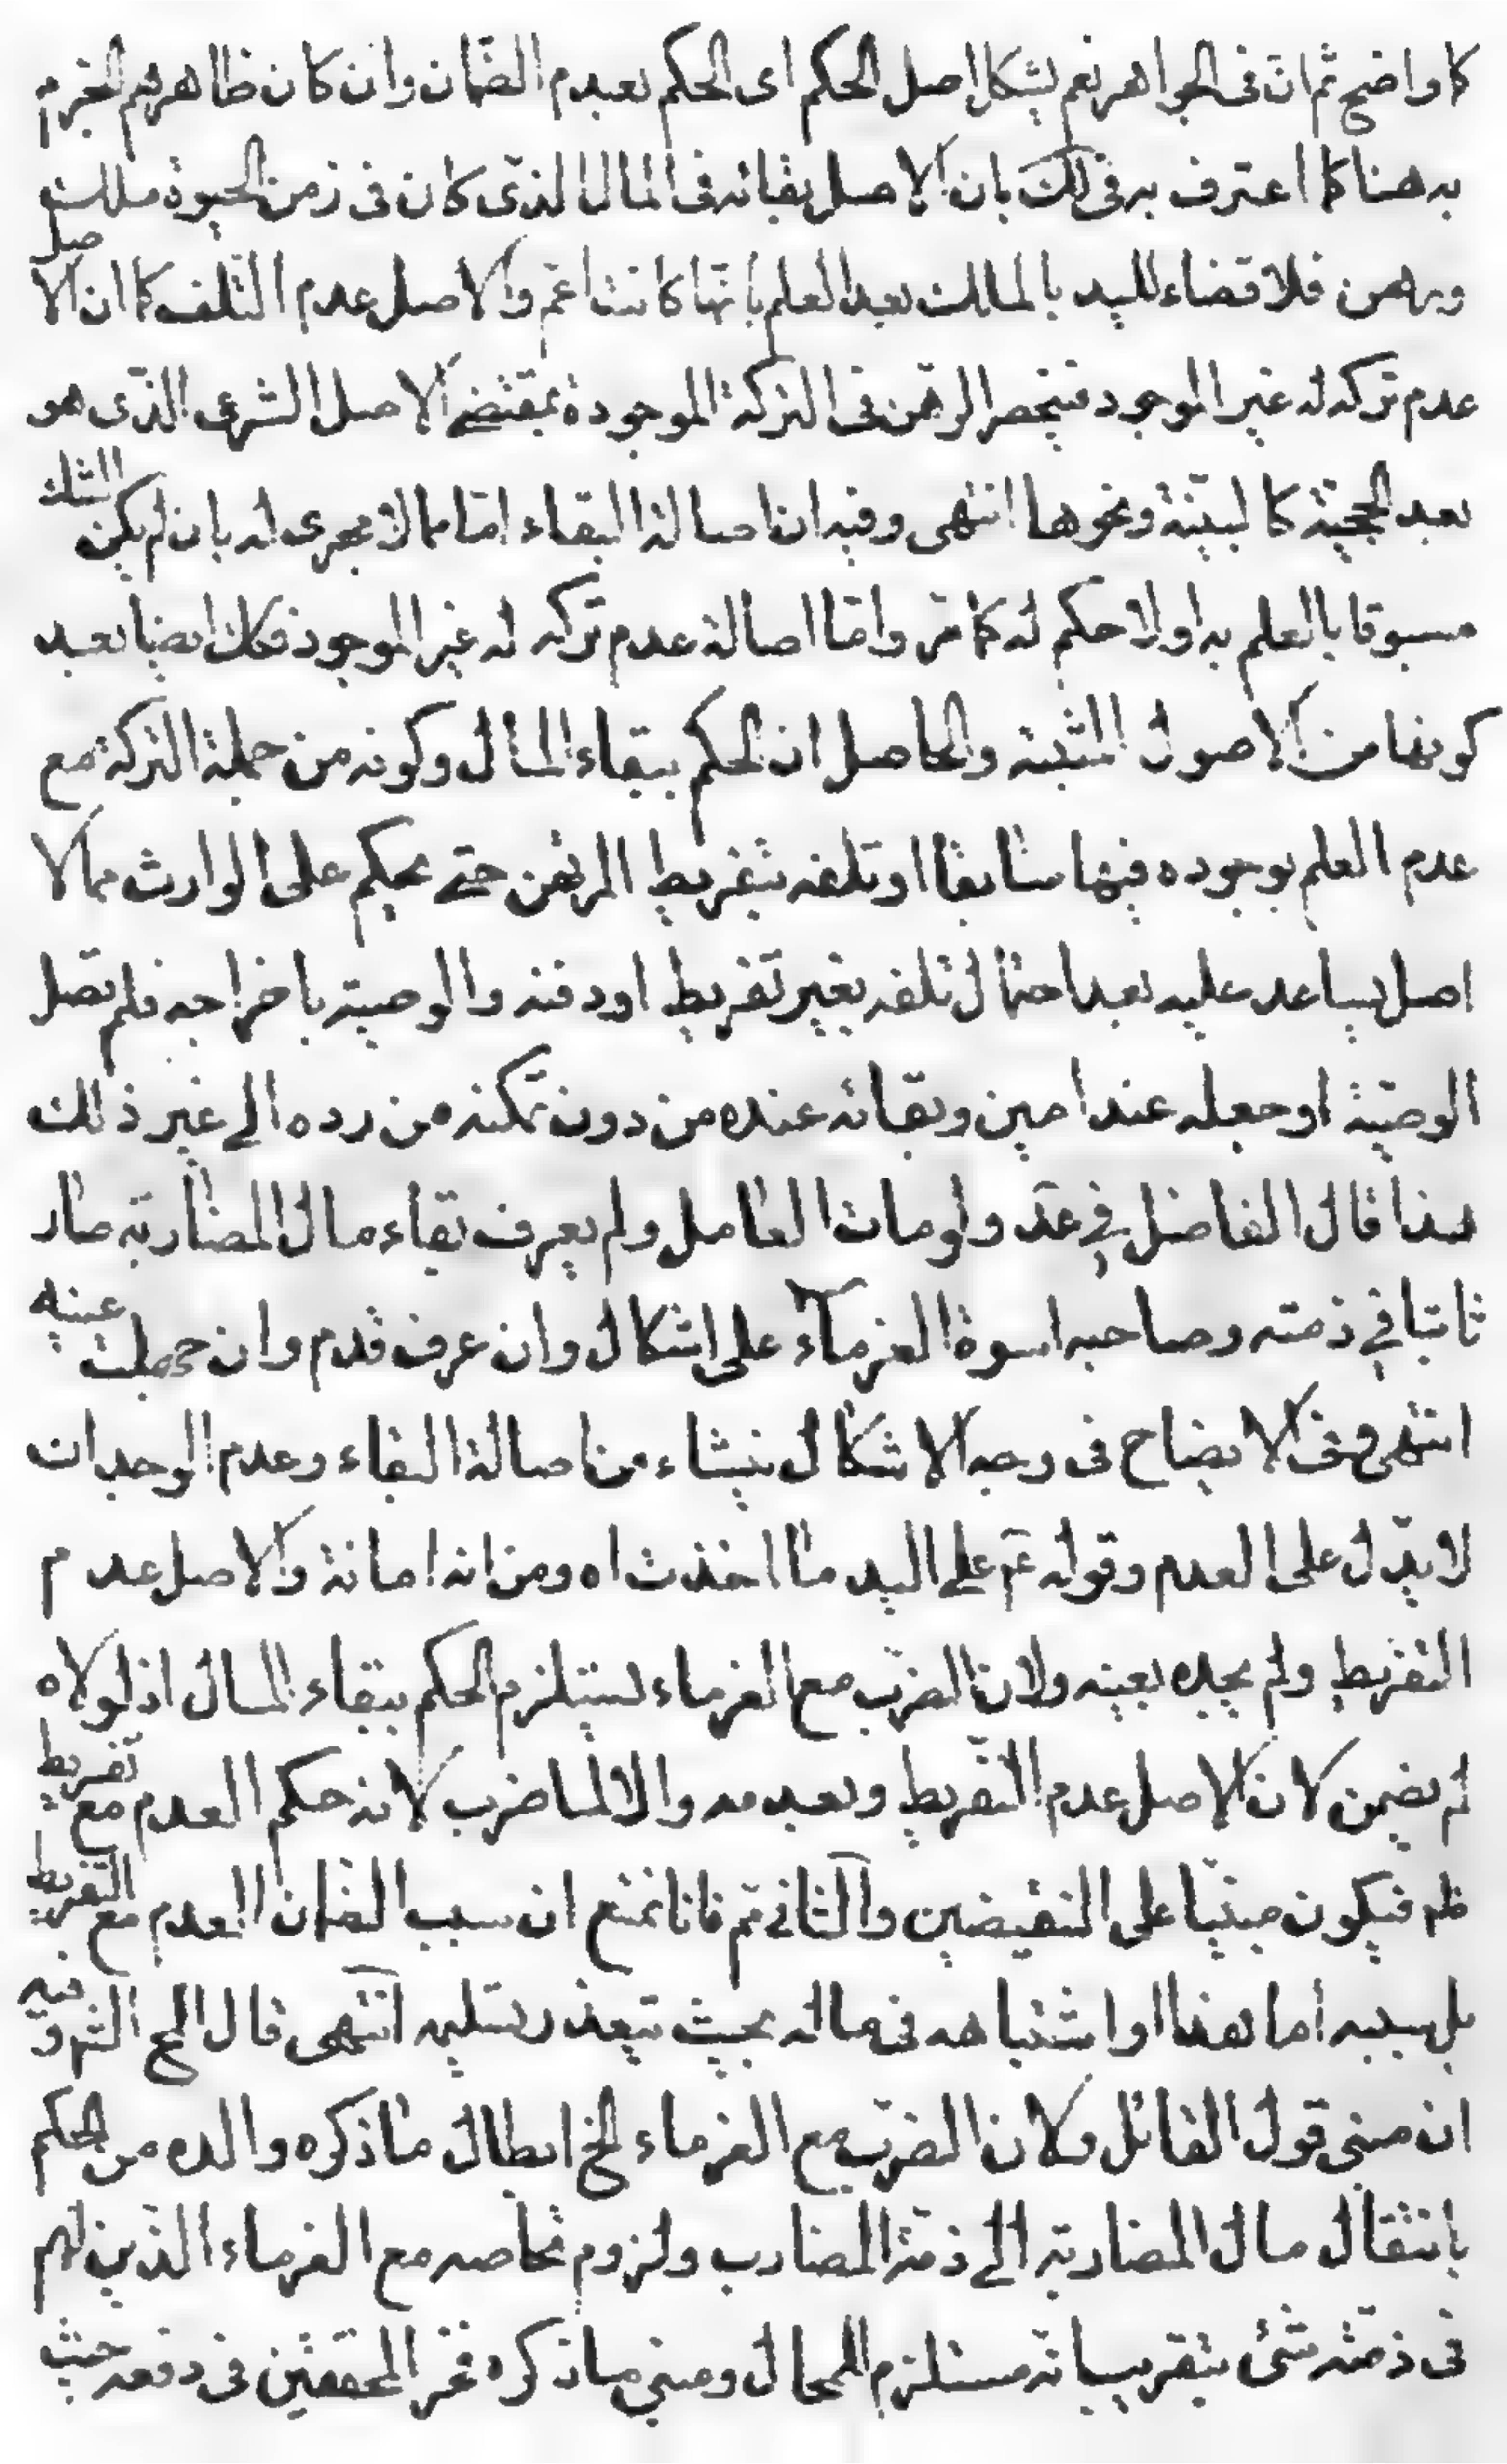 كما واضح ثم ان فى الجواهر نعم يشكل اصل الحكم اى الحكم بعدم الضمان وان كان ظاهرهم الجزم
به هنا كما اعترف به فى لك بان الاصل بقائه فى المال الذى كان فى زمن الحيوة ملك
ورهن فلا قضاء لليد بالملك بعد العلم بانها كانت اعم والاصل عدم التلف كما ان الاصل
عدم تركه له غير الموجود فينحصر الرهن فى التركة الموجودة بمقتضى الاصل الشرعى الذى هو
بعد الحجية كالبينة ونحوها انتهى وفيه ان اصالة البقاء اما مما لا مجرى له بان لم يكن الشك
مسبوقا بالعلم به او لا حكم له كما مر واما اصالة عدم تركه له غير الموجود فكك ايضا بعد
كونها من الاصول المثبتة والحاصل ان الحكم ببقاء المال وكونه من جملة التركة مع
عدم العلم بوجوده فيها سابقا او تلفه بتفريط المرتهن حتى يحكم على الوارث مما لا
اصل يساعد عليه بعد احتمال تلفه بغير تفريط او دفنه والوصية باخراجه فلم تصل
الوصية او جعله عند امين وبقائه عنده من دون تمكنه من رده الى غير ذلك
هذا قال الفاضل فى عد ولو مات العامل ولم يعرف بقاء مال المضاربة صار
ثابتا فى ذمته وصاحبه اسوة الغرماء على اشكال وان عرف قدم وان جهلت عينه
انتهى وفى الايضاح فى وجه الاشكال ينشاء من اصالة البقاء وعدم الوجدان
لا يدل على العدم وقوله عم على اليد ما اخذت اه ومن انه امانة والاصل عدم
التفريط ولم يجده بعينه ولان الضرب مع الغرماء يستلزم الحكم ببقاء المال اذ لولاه
لم يضمن لان الاصل عدم التفريط وبعدمه والا لما ضرب لانه حكم العدم مع تفريط
فيكون مبنيا على النقيضين والثانى تم فانا نمنع ان سبب الضمان العدم مع التفريط
بل سببه اما هذا او اشتباهه فى ماله بحيث يتعذر تسليمه انتهى قال المح الش وفيه
ان مبنى قول القائل ولان الضرب مع الغرماء الخ ابطال ما ذكره والده من الحكم
بانتقال مال المضاربة الى ذمة المضارب ولزوم تحاصه مع الغرماء الذين لهم
فى ذمته شئ بتقريب انه مستلزم للمحال ومبنى ما ذكره فخر المحققين فى دفعه حيث